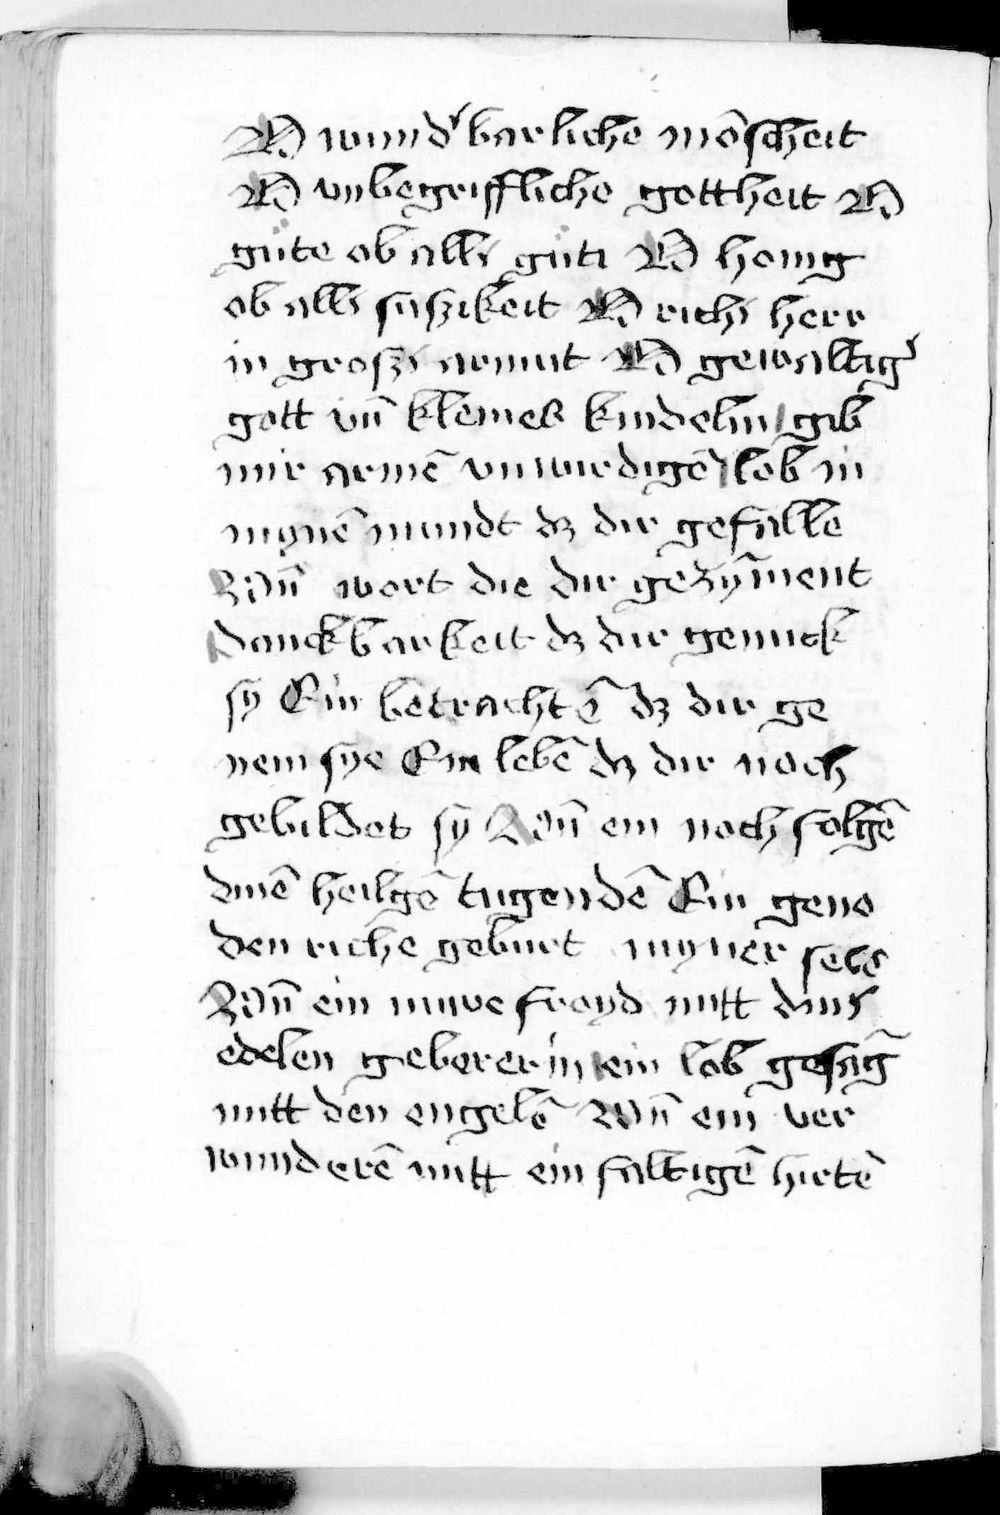 O wundʼbarliche mēscheit
O vnbegriffliche gottheit O
güte ob alli güti O honig
ob alli suszikeit O richi herr
in groszi armut O gewaltigʼ
gott vn̄ kleines kindelin gib
mir armē vnwirdigē lob in
mynē mundt dz dir gefalle
Vn̄ wort die dir gezÿment
Danckbarkeit dz dir genück
sy Ein betrachtē dz dir ge
nem sye Ein lebē dz dir noch
gebildet sÿ Vn̄ ein nochfolgē
dinē heilgē tugendē Ein geno
den riche geburt myner sele
Vn̄ ein nuwe froyd mitt dinʼ
edelen gebererin ein lob gesāg
mitt den engelē Vn̄ ein ver
wunderē mitt einfaltigē hirtē